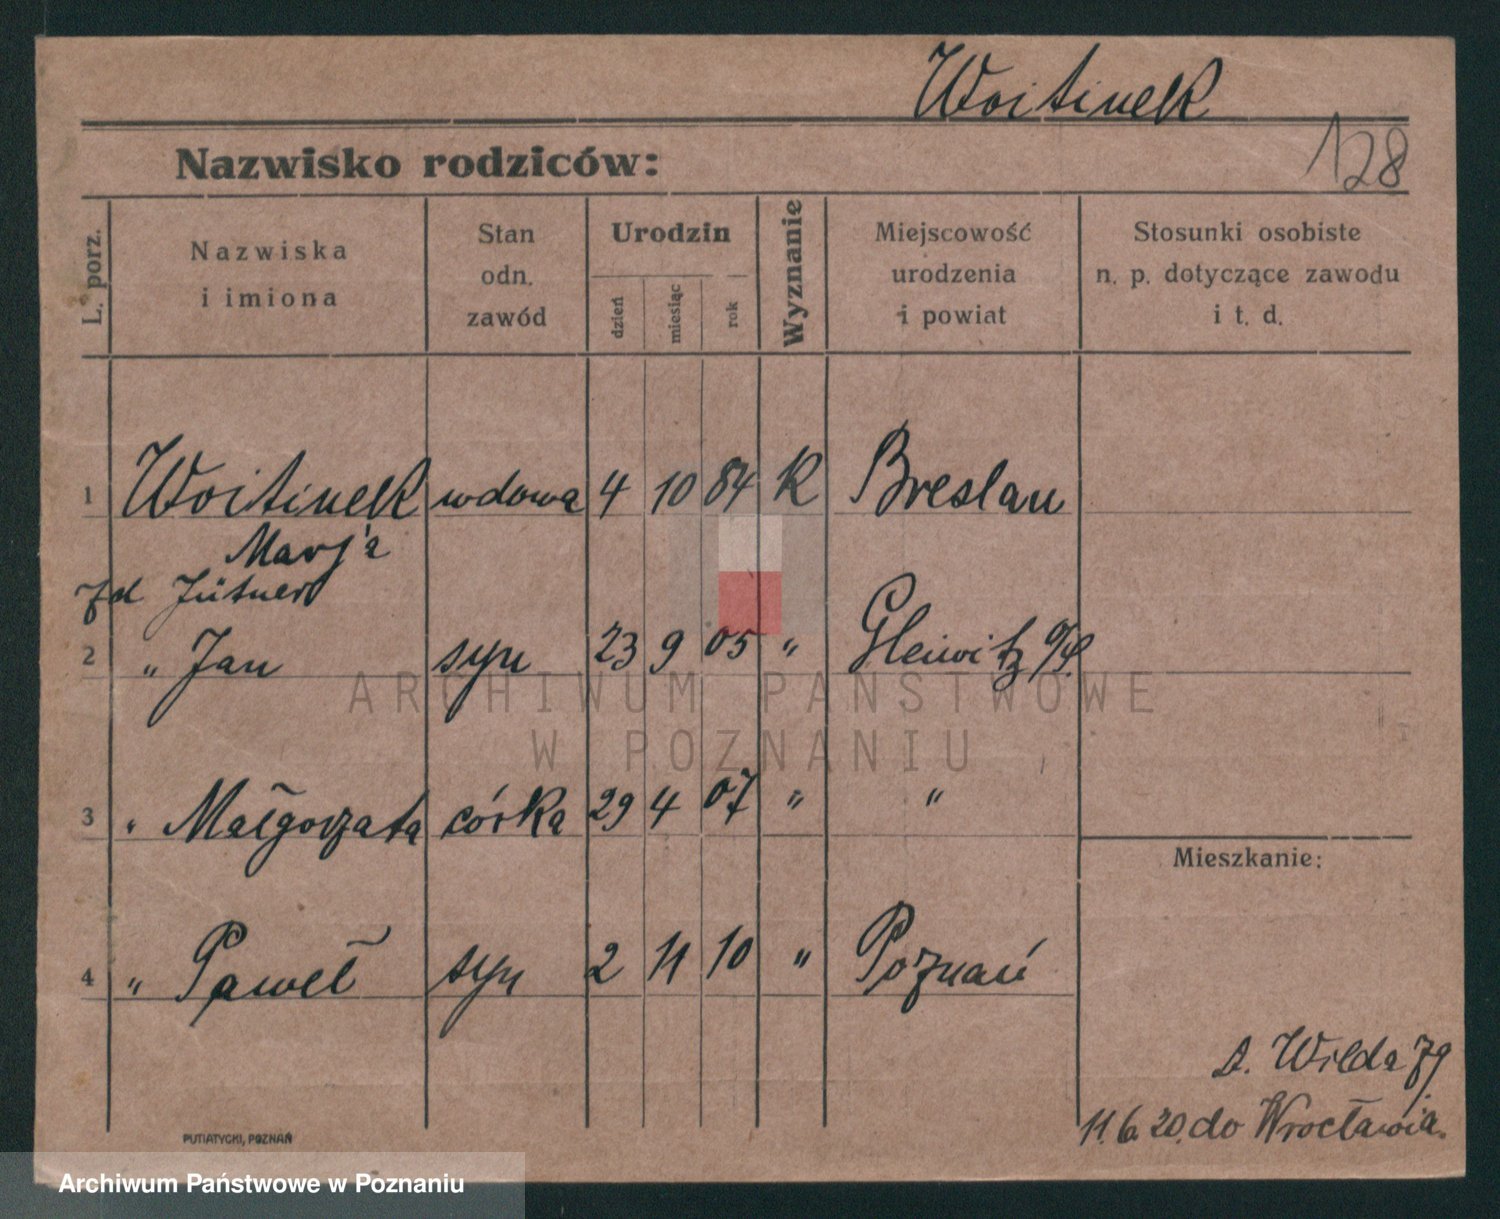 Woitinek
128
Nazwisko rodziców:
L. porz.
Nazwiska i imiona
Stan odn. zawód
Urodzin
dzień
miesiąc
rok
Wyznanie
Miejscowość urodzenia i powiat
Stosunki osobiste n. p. dotyczące zawodu i t. d.
1 Woitinek wdowa 4 10 84 K Breslau
Marja
zd Jütner
2 " Jan syn 23 9 05 " Gleiwitz O/S.
ARCHIWUM PAŃSTWOWE
W POZNANIU
3 " Małgorzata córka 29 4 07 " "
Mieszkanie:
4 " Paweł syn 2 11 10 " Poznań
Wilda 79
11. 6. 20. do Wrocławia.
PUTIATYCKI, POZNAŃ
Archiwum Państwowe w Poznaniu